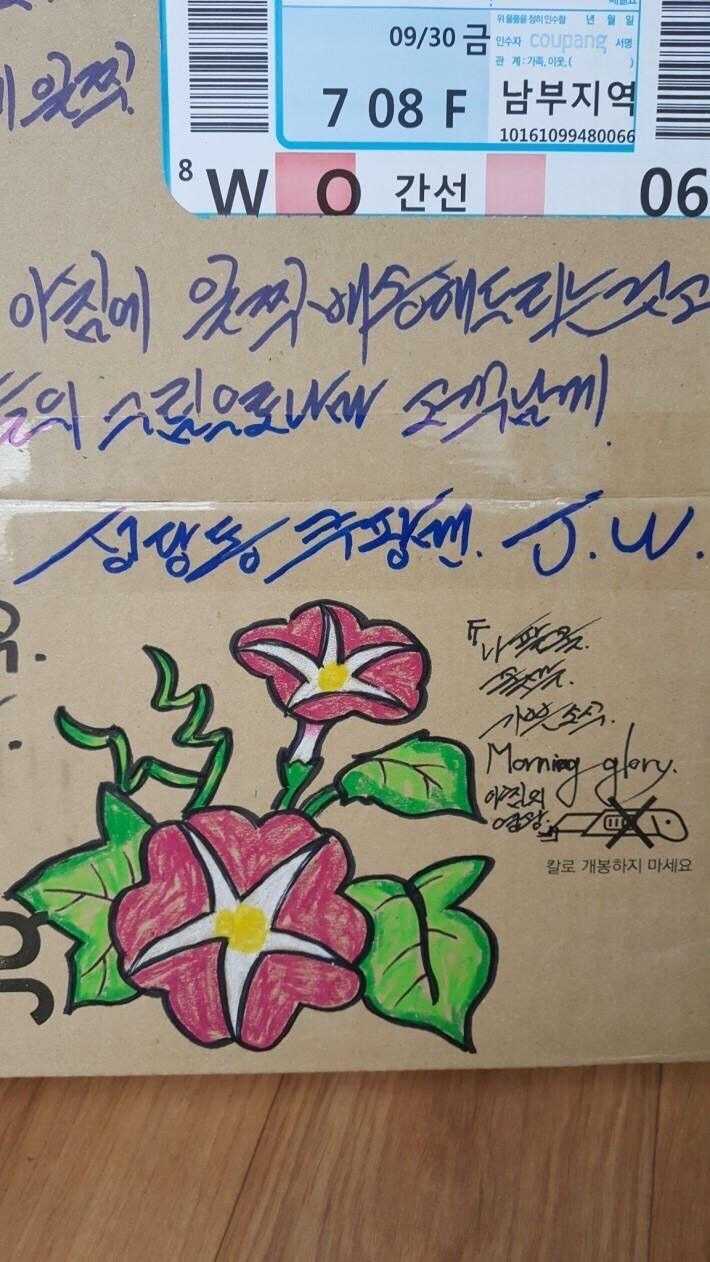 위 물품을 정히 인수함 년 월 일
09/30 금
인수자 coupang 서명
관 계 : 가족, 이웃, ( )
7 08 F
남부지역
10161099480066
8
W O 간선 06
일찍
아침에 일찍 배송해드리는것
고객님께
성당동 쿠팡맨. J.W.
나팔꽃.
기쁜소식.
Morning glory.
아침의
영광.
칼로 개봉하지 마세요